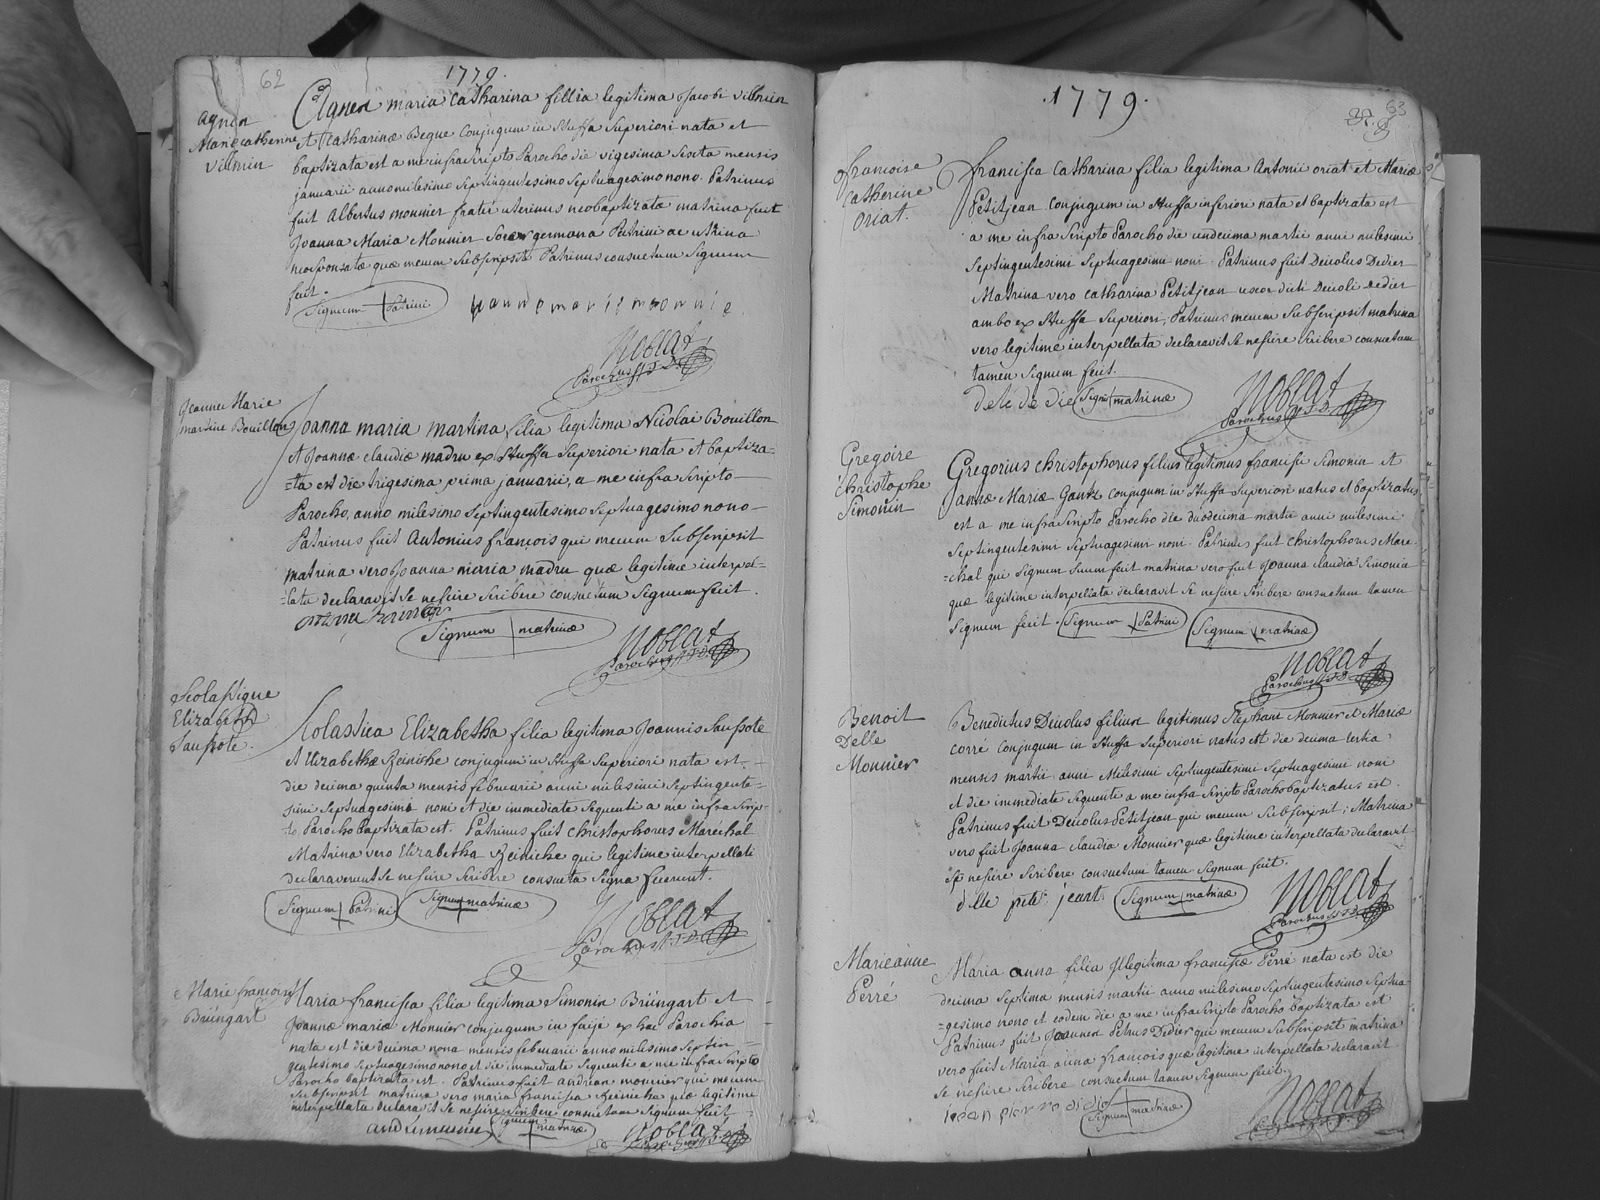 62
1779.
Agnen
Marie catherine
Villmin
Agnen maria catharina fillia legitima Jacobi villmin
Et Catharinæ Begue conjugum in stuffa Superiori nata et
baptizata est a me infra Scripto Parocho die vigesima Sexta mensis
januarii anno milesimo Septingentesimo Septuagesimo nono. Patrinus
fuit Albertus monnier frater uterinus neobaptizatæ matrina fuit
Joanna Maria Monnier Soror germana Patrini ac uterina
neosponsatæ quæ mecum Subscripsit Patrinus consuetum Signum
fecit.
Signum Patrini
Noblat
Parochus SS. T. D.
Jeanne Marie
martine Bouillon
Joanna maria martina filia legitima Nicolai Bouillon
Et Joannæ claudiæ madru ex Stuffa Superiori nata et baptiza-
-ta est die trigesima prima januarii, a me infra Scripto
Parocho, anno milesimo Septingentesimo Septuagesimo nono
Patrinus fuit Antonius françois qui mecum Subscripsit
matrina vero Joanna maria madru quæ legitime interpel-
-lata declaravit Se nescire Scribere consuetum Signum fecit.
Signum matrinæ
Noblat
Parochus SS. T. D.
Scolastique
Elizabeth
Saupote.
Scolastica Elizabetha filia legitima Joannis Saupote
Et Elizabethæ Reiniche conjugum in Stuffa Superiori nata est
die decima quinta mensis februarii anni milesimi Septingente-
simi Septuagesimi noni et die immediate Sequenti a me infra Scrip-
-to Parocho baptizata est. Patrinus fuit christophorus Maréchal
Matrina vero Elizabetha Reiniche qui legitime interpellati
declaraverunt Se nescire Scribere consueta Signa fecerunt.
Signum Patrini
Signum matrinæ
Noblat
Parochus SS. T. D.
Marie françoise
Brüngart
Maria francisca filia legitima Simonin Brüngart et
Joannæ maria Monnier conjugum in faijé ex hac Parochia
nata est die decima nona mensis februarii anno milesimo Septin-
gentesimo Septuagesimo nono et die immediate Sequenti a me infra Scripto
Parocho baptizata est. Patrinus fuit andrian monnier qui mecum
Subscripsit matrina vero maria francisca Reiniche quæ legitime
interpellata declaravit Se nescire Scribere consuetum Signum fecit
Signum matrinæ
Noblat
1779.
63
françoise
Catherine
Oriat.
francisca Catharina filia legitima Antonii oriat et Mariæ
Petitjean conjugum in Stuffa inferiori nata et baptizata est
a me infra Scripto Parocho die undecima martii anni milesimi
Septingentesimi Septuagesimi noni. Patrinus fuit Deicolus Dedier
Matrina vero catharina Petitjean uxor dicti Deicoli dedier
ambo ex Stuffa Superiori, Patrinus mecum Subscripsit matrina
vero legitime interpellata declaravit Se nescire Scribere consuetum
tamen Signum fecit.
Signum matrinæ
Noblat
Parochus SS. T. D.
Gregoire
christophe
Simonin
Gregorius christophorus filius legitimus francisci Simonin et
annæ Mariæ Gantz conjugum in Stuffa Superiori natus et baptizatus
est a me infra Scripto Parocho die duodecima martii anni milesimi
Septingentesimi Septuagesimi noni. Patrinus fuit christophorus Mare-
-chal qui Signum Suum fecit matrina vero fuit Joanna claudia Simonin
quæ legitime interpellata declaravit Se nescire Scribere consuetum tamen
Signum fecit. Signum Patrini Signum matrinæ
Noblat
Parochus SS. T. D.
Benoit
Delle
Monnier
Benedictus Deicolus filium legitimus Stephani Monnier et Mariæ
corré conjugum in Stuffa Superiori natus est die decima tertia
mensis martii anni Milesimi Septingentesimi Septuagesimi noni
et die immediate Sequenti a me infra Scripto Parocho baptizatus est.
Patrinus fuit Deicolus Petitjean qui mecum Subscripsit, Matrina
vero fuit Joanna claudia Monnier quæ legitime interpellata declaravit
Se nescire Scribere consuetum tamen Signum fecit.
Signum matrinæ
Noblat
Parochus SS. T. D.
Marie anne
Perré
Maria anna filia Illegitima franciscæ Perré nata est die
decima Septima mensis martii anno milesimo Septingentesimo Septua-
-gesimo nono et eodem die a me infra Scripto Parocho baptizata est
Patrinus fuit Joannen Petrus Dedier qui mecum Subscripsit matrina
vero fuit Maria anna francois quæ legitime interpellata declaravit
Se nescire Scribere consuetum tamen Signum fecit.
Signum matrinæ
Noblat